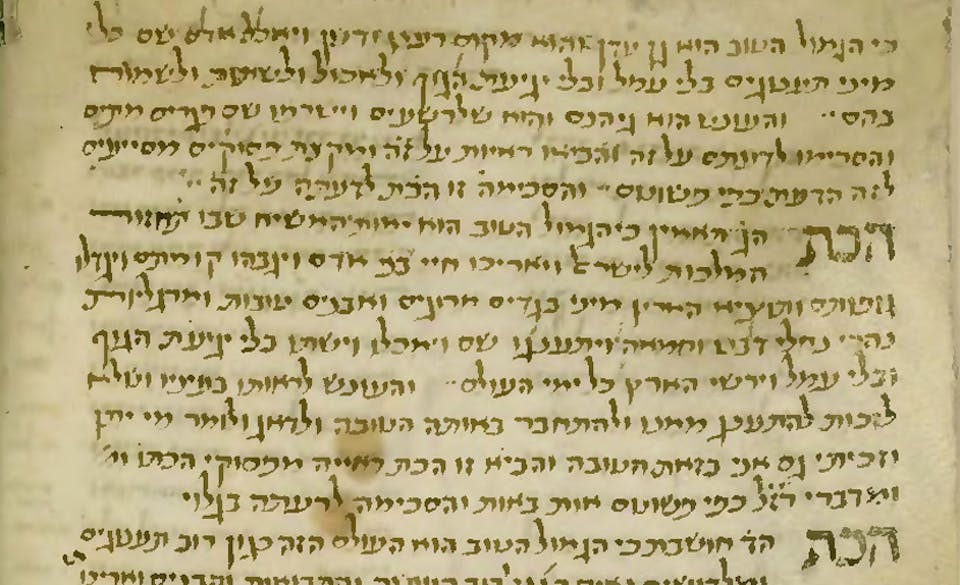 כי הגמול הטוב הוא גן עדן והוא מקום רענן ודשן ויאכל אדם שם כל
מיני תענוגים בלי עמל ובלי יגיעת הגוף ולאכול ולשתות ולשמוח
בהם והעונש הוא גיהנם והוא של רשעים ויישרפו שם
והסכימו לדעתם על זה והביאו ראיות על זה ומקצת פסוקים מסייעים
לזה הדעת כפי פשוטם והסכימה זו הכת לדעתה על זה
הכת הב׳ תאמין כי הגמול הטוב הוא ימות המשיח שבו תחזור
המלכות לישראל ויאריכו חיי בני אדם ויגבהו קומתם ויגדלו
ותוציא הארץ מיני בגדים ארוגים ואבנים טובות ומרגליות
נהרי נחלי דבש וחמאה ויתענגו שם ויאכלו וישתו בלי יגיעת הגוף
ובלי עמל וירשי הארץ כל ימי העולם והעונש לראותו בעיניו ושלא
לזכות להתענג ממנו ולהתחבר באותה הטובה ולדאג ולומר מי יתן
וזכיתי גם אני בזאת הטובה והביא זו הכת ראייה מפסוקי הכתו׳
ומדברי רז״ל כפי פשוטם אות באות והסכימה לדעתה בגלוי
הכת הד׳ חושבת כי הגמול הטוב הוא העולם הזה כגון רוב תענוגים